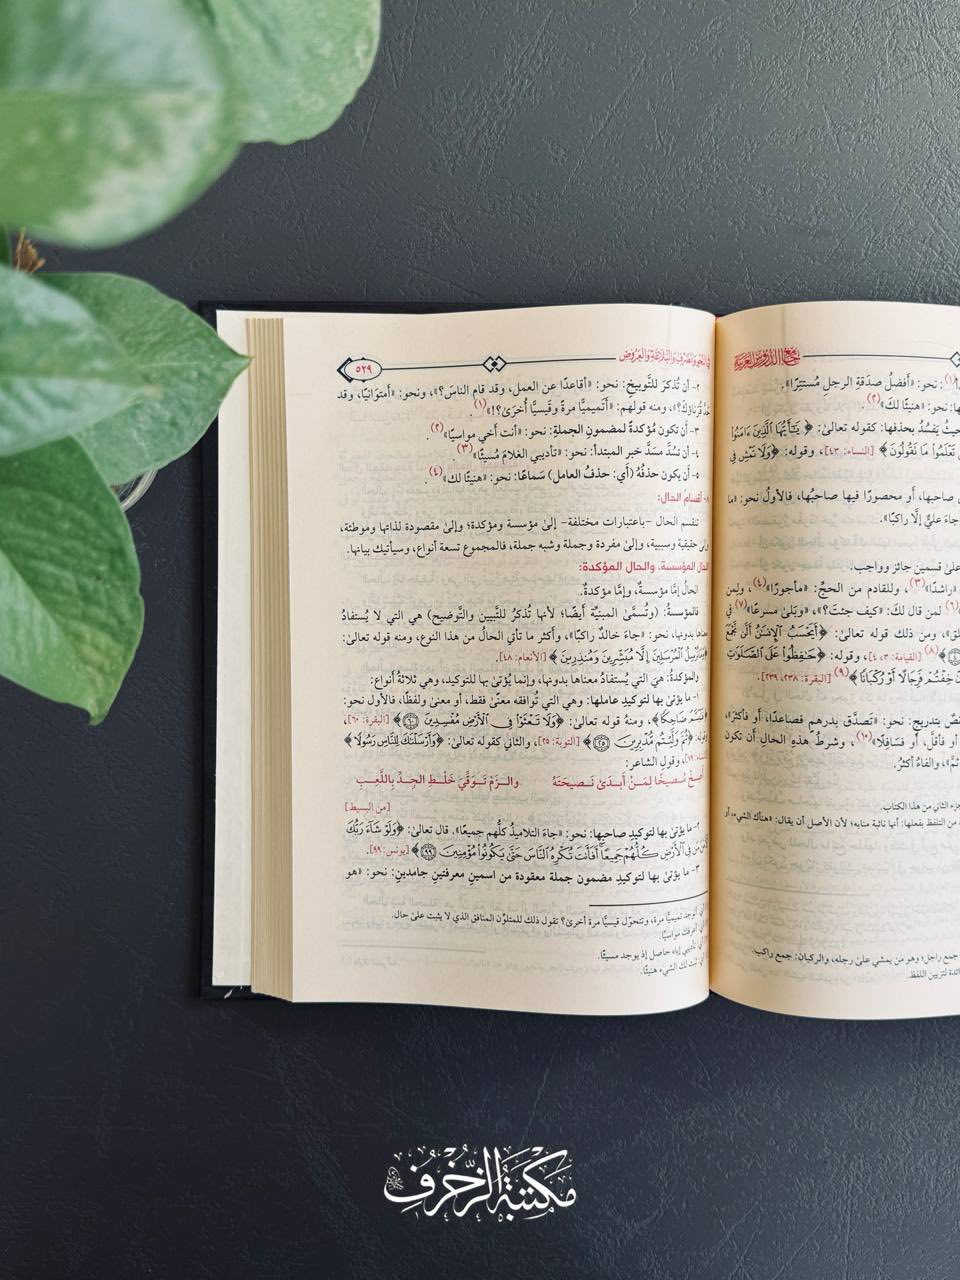 جامع الدروس العربية
نحو: «أفضلُ صدَقةِ الرجلِ مُستتِرًا».
نحو: «هنيئًا لكَ»(٢).
حيثُ يَفسُدُ بحذفها: كقوله تعالىٰ: ﴿يَٰٓأَيُّهَا ٱلَّذِينَ ءَامَنُوا۟
تَعْلَمُوا۟ مَا تَقُولُونَ﴾ [النساء: ٤٣]، وقوله: ﴿وَلَا تَمْشِ فِى
صاحبها، أو محصورًا فيها صاحبُها، فالأولُ نحو: «ما
جاءَ عليٌّ إلَّا راكبًا».
علىٰ قسمين جائز وواجب.
«راشدًا»(٣)، وللقادم من الحجِّ: «مأجورًا»(٤)، ولمن
(٦) لمن قال لكَ: «كيف جئتَ؟»، «وبَلىٰ مسرعًا»(٧) في
ومن ذلك قوله تعالىٰ: ﴿أَيَحْسَبُ ٱلْإِنسَٰنُ أَلَّن نَّجْمَعَ
(٨) [القيامة: ٣، ٤]، وقوله: ﴿حَٰفِظُوا۟ عَلَى ٱلصَّلَوَٰتِ
خِفْتُمْ فَرِجَالًا أَوْ رُكْبَانًا﴾(٩) [البقرة: ٢٣٨، ٢٣٩].
بتدريجٍ: نحو: «تَصدَّق بدرهمٍ فصاعدًا، أو فأكثرَ»،
أو فأقلَّ، أو فسَافِلًا»(١٠)، وشرطُ هذهِ الحالِ أن تكون
والفاءُ أكثرُ.
الثاني من هذا الكتاب.
من التلفظ بفعلها: أنها نائبة منابه؛ لأن الأصل أن يقال: «هنأك الشيء» أو
جمع راجل؛ وهو من يمشي علىٰ رجله، والركبان: جمع راكب.
زائدة لتزيين اللفظ
في النحو والصرف والبلاغة والعروض
٥٢٩
٢- أن تُذكرَ للتَّوبيخِ: نحو: «أقاعدًا عن العمل، وقد قام الناسُ؟»، ونحو: «أمتوَانيًا، وقد
ومنه قولهم: «أتَميميًّا مرةً وقَيسيًّا أُخرَىٰ؟!»(١).
٣- أن تكون مُؤكدةً لمضمونِ الجملةِ: نحو: «أنت أخي مواسيًا»(٢).
٤- أن تسُدَّ مَسَدَّ خبرِ المبتدأ: نحو: «تأديبي الغلامَ مُسيئًا»(٣)
٥- أن يكون حذفُهُ (أي: حذفُ العامل) سَماعًا: نحو: «هنيئًا لك»(٤)
أقسام الحال:
تنقسم الحال -باعتبارات مختلفة- إلىٰ مؤسسة ومؤكدة؛ وإلىٰ مقصودة لذاتها وموطئة،
وإلىٰ حقيقية وسببية، وإلىٰ مفردة وجملة وشبه جملة، فالمجموع تسعة أنواع، وسيأتيك بيانها.
الحال المؤسسة، والحال المؤكدة:
الحالُ إمَّا مؤسسةٌ، وإمَّا مؤكدةٌ.
فالمؤسسةُ: (وتُسمَّىٰ المبيِّنةَ أيضًا؛ لأنها تُذكرُ للتَّبيين والتَّوضيحِ) هي التي لا يُستفادُ
معناها بدونها، نحو: «جاءَ خالدٌ راكبًا»، وأكثر ما تأتي الحالُ من هذا النوع، ومنه قوله تعالىٰ:
﴿وَمَا نُرْسِلُ ٱلْمُرْسَلِينَ إِلَّا مُبَشِّرِينَ وَمُنذِرِينَ﴾ [الأنعام: ٤٨].
والمؤكدةُ: هيَ التي يُستفادُ معناها بدونها، وإنما يُؤتىٰ بها للتوكيد، وهي ثلاثةُ أنواع:
١- ما يؤتىٰ بها لتوكيد عاملها: وهي التي تُوافقه معنىً فقط، أو معنىً ولفظًا، فالأول نحو:
﴿فَتَبَسَّمَ ضَاحِكًا﴾، ومنهُ قوله تعالىٰ: ﴿وَلَا تَعْثَوْا۟ فِى ٱلْأَرْضِ مُفْسِدِينَ ٦٠﴾ [البقرة: ٦٠]،
﴿ثُمَّ وَلَّيْتُم مُّدْبِرِينَ ٢٥﴾ [التوبة: ٢٥]، والثاني كقوله تعالىٰ: ﴿وَأَرْسَلْنَٰكَ لِلنَّاسِ رَسُولًا﴾
وقول الشاعر:
أَصِخْ مُصِيخًا لِمَنْ أَبدَىٰ نَصيحَتَهُ والـزَمْ تَوَقِّيَ خَلْطِ الجِدِّ بِاللَّعِبِ
[من البسيط]
٢- ما يؤتىٰ بها لتوكيدِ صاحبها: نحو: «جاءَ التلاميذُ كلُّهم جميعًا». قال تعالىٰ: ﴿وَلَوْ شَآءَ رَبُّكَ
لَءَامَنَ مَن فِى ٱلْأَرْضِ كُلُّهُمْ جَمِيعًا أَفَأَنتَ تُكْرِهُ ٱلنَّاسَ حَتَّىٰ يَكُونُوا۟ مُؤْمِنِينَ ٩٩﴾ [يونس: ٩٩].
٣- ما يؤتىٰ بها لتوكيدِ مضمون جملة معقودة من اسمينِ معرفتينِ جامدينِ: نحو: «هو
أتوجد تميميًّا مرة، وتتحوّل قيسيًّا مرة أخرىٰ؟ تقول ذلك للمتلوّن المنافق الذي لا يثبت علىٰ حال.
أعرفك مواسيًا.
تأديبي إياه حاصل إذ يوجد مسيئًا.
ثبت لك الشيء هنيئًا.
مكتبة الزخرف